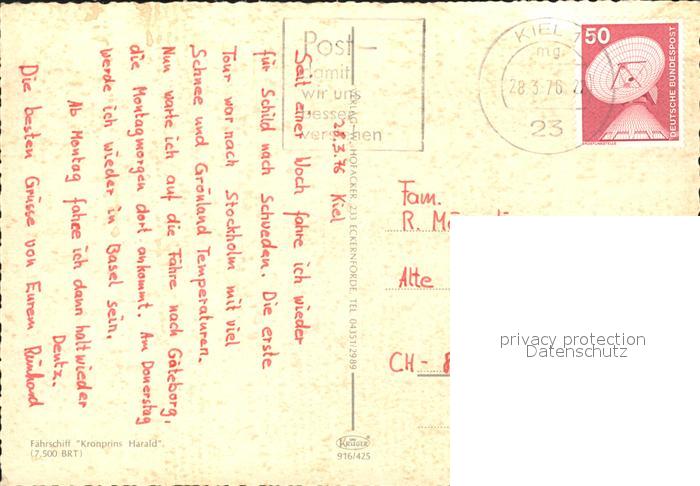 28.3.76 Kiel
Seit einer Woch fahre ich wieder
für Schild nach Schweden. Die erste
Tour war nach Stockholm mit viel
Schnee und Grönland Temperaturen.
Nun warte ich auf die Fähre nach Göteborg,
die Montagmorgen dort ankommt. Am Donerstag
werde ich wieder in Basel sein.
Ab Montag fahre ich dann halt wieder
Deutz.
Die besten Grüsse von Eurem Reinhard
Fährschiff "Kronprins Harald".
(7,500 BRT)
Post -
damit
wir uns
besser
verstehen
KIEL 1
mg
28.3.76
23
50
DEUTSCHE BUNDESPOST
ERDFUNKSTELLE
VERLAG W. HOFACKER, 233 ECKERNFÖRDE, TEL. 04351/2989
KRÜGER
916/425
Fam.
R.
Alte
CH-
privacy protection
Datenschutz